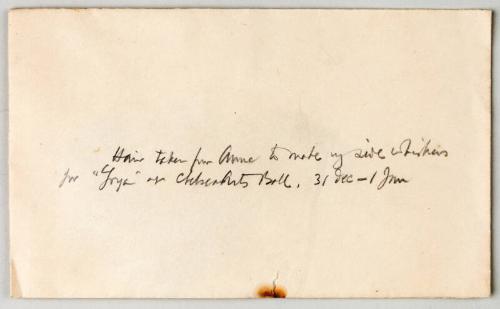 Hair taken from Anne to make my side whiskers
for "Goya" at Chelsea Arts Ball, 31 Dec – 1 Jan